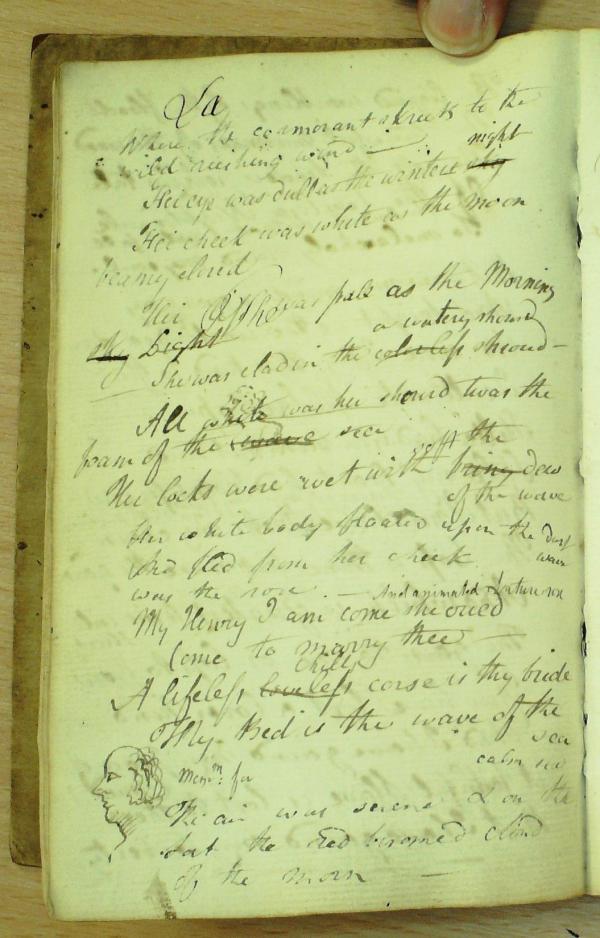 La
Where the cormorant shreek to the
wild rushing wind
night
Her eye was dull as the winters sky
Her cheek was white as the moon
beamy cloud
Her was pale as the Morning
sky Light a watery shroud
She was clad in the colorless shroud
All white was her shroud twas the
foam of the wave sea
Her locks were wet with the briny dew
of the wave
Her white body floated upon the
And fled from her cheek
was the rose And animated
My Henry I am come she cried
Come to marry thee
chilly
A lifeless loveless corse is thy bride
My Bed is the wave of the
sea
calm sea
Mem: for
The air was serene & on the
sat the cloud
of the morn